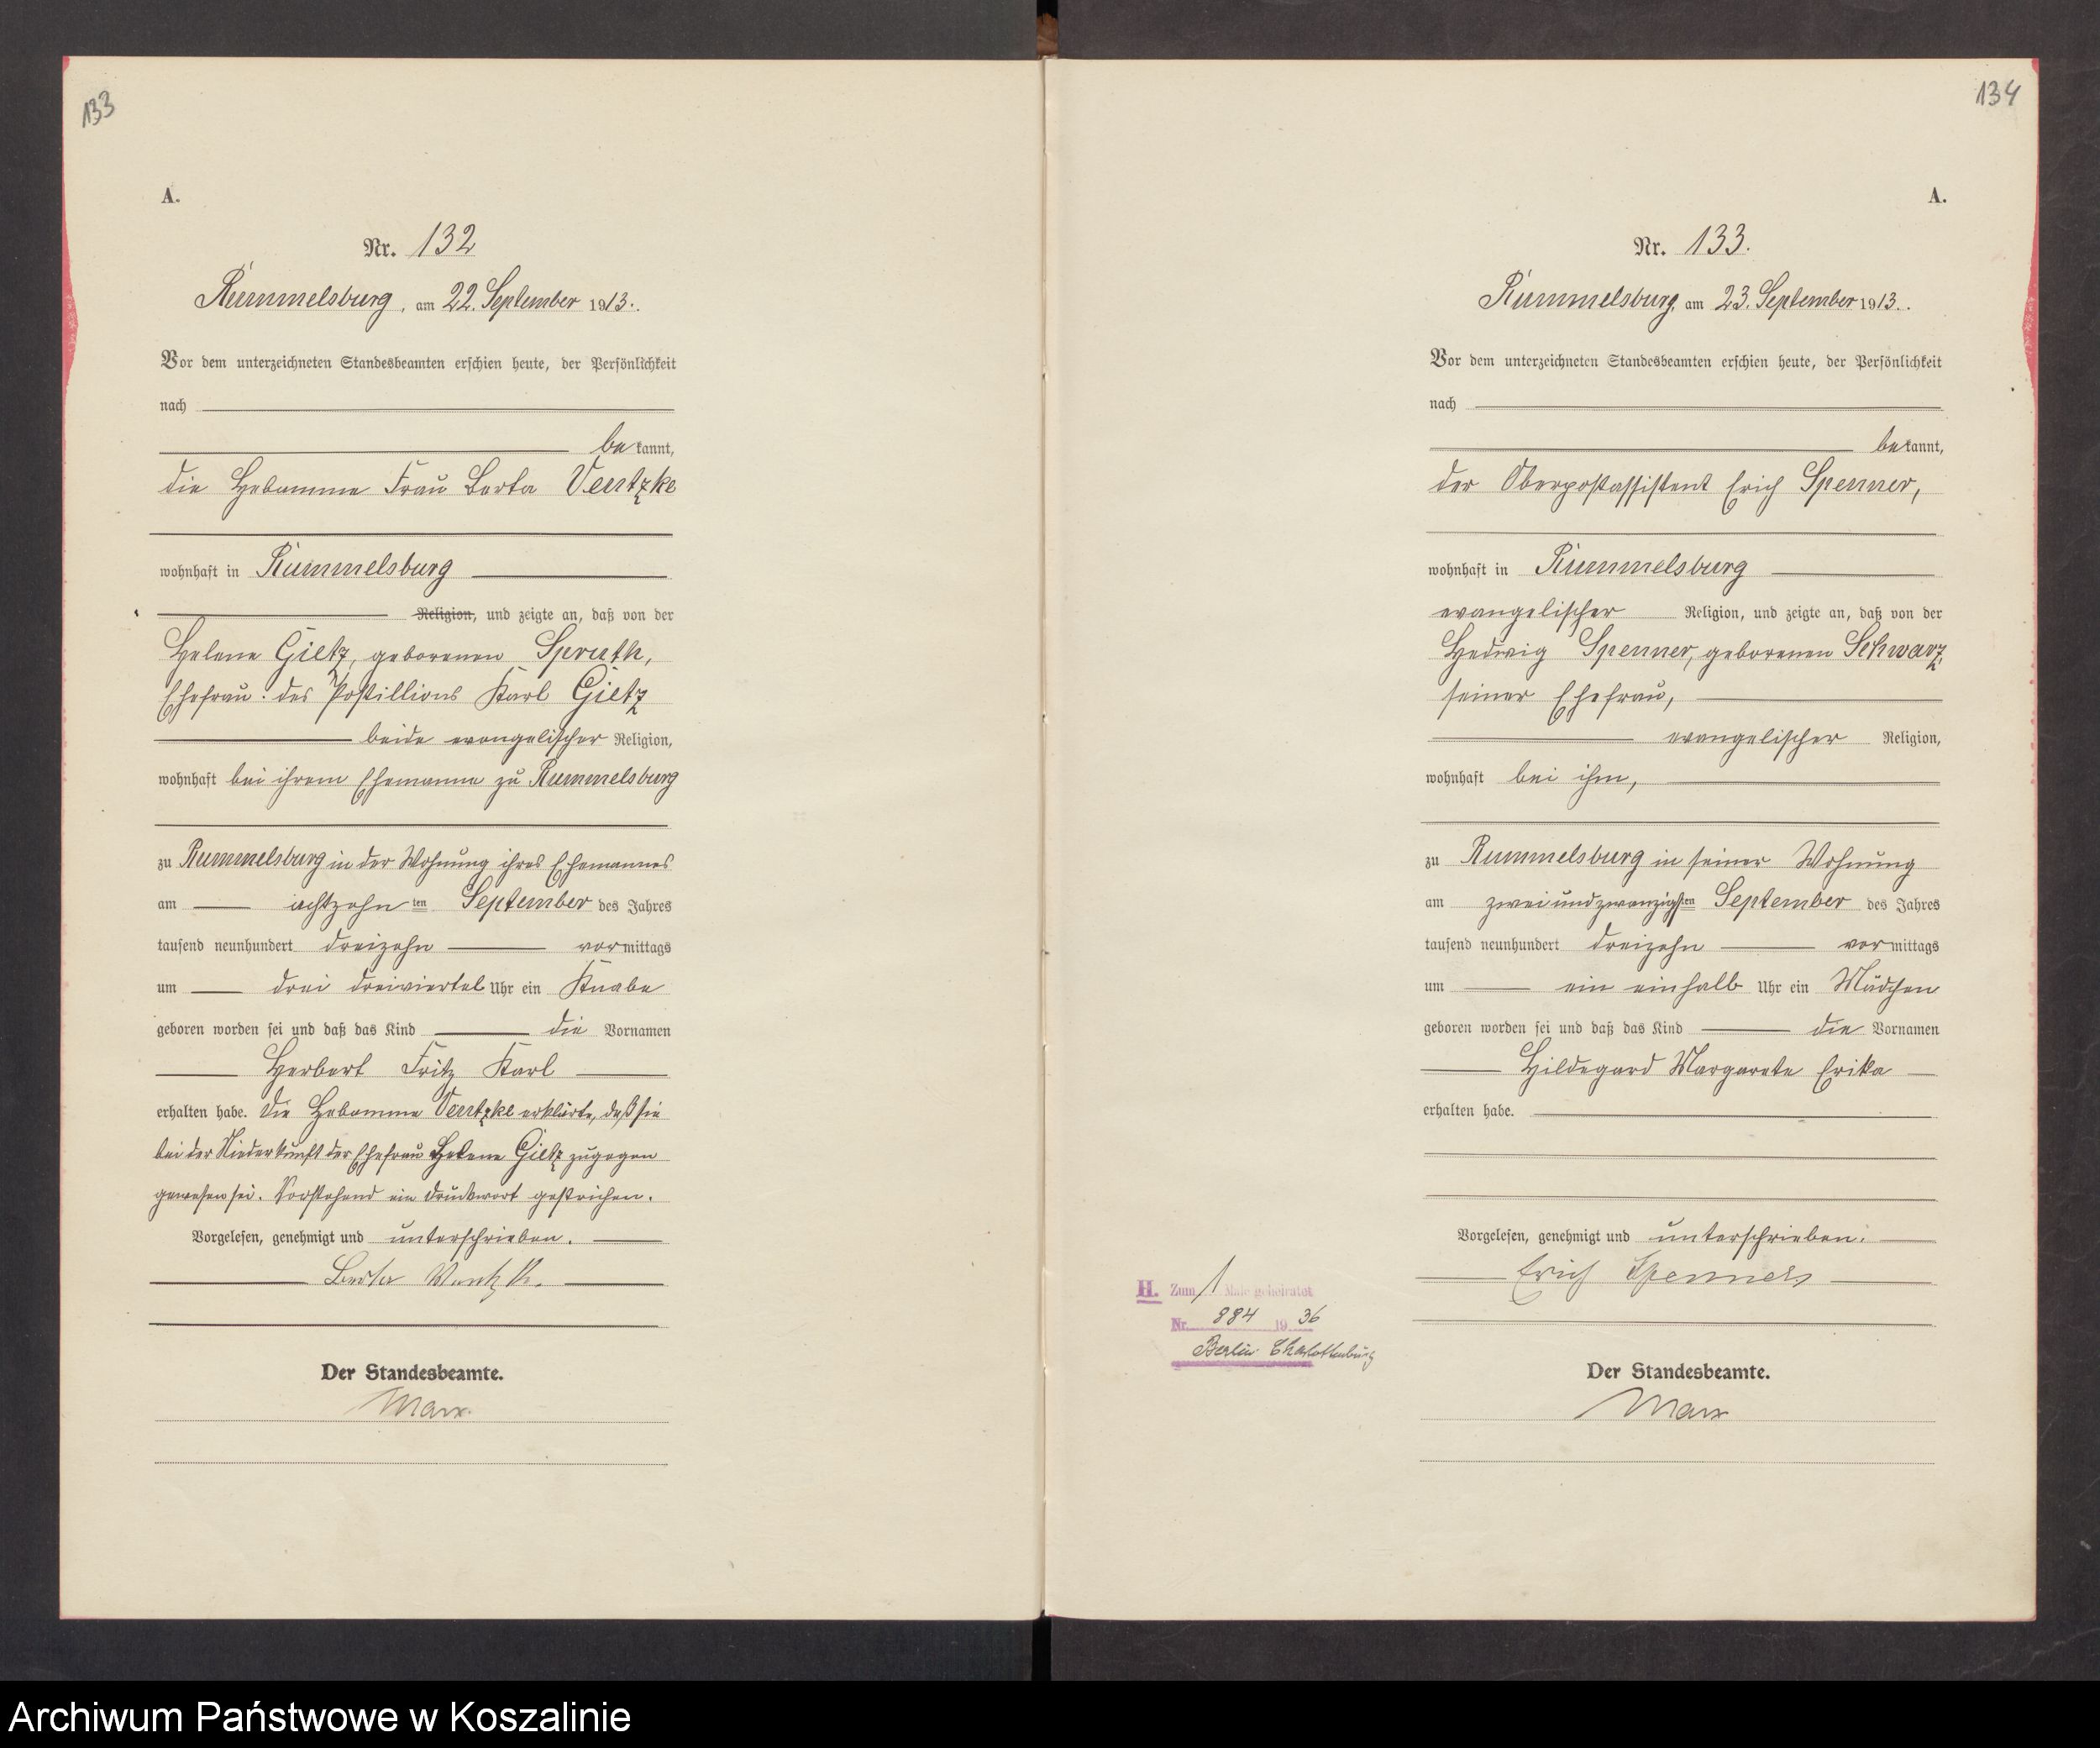 133
A.
Nr. 132
Rummelsburg, am 22. September 1913.
Vor dem unterzeichneten Standesbeamten erschien heute, der Persönlichkeit
nach
bekannt,
die Hebamme Frau Berta Ventzke
wohnhaft in Rummelsburg
Religion, und zeigte an, daß von der
Helene Gietz, geborenen Spruth,
Ehefrau des Postillions Karl Gietz
beide evangelischer Religion,
wohnhaft bei ihrem Ehemanne zu Rummelsburg
zu Rummelsburg in der Wohnung ihres Ehemannes
am achtzehnten September des Jahres
tausend neunhundert dreizehn vormittags
um drei dreiviertel Uhr ein Knabe
geboren worden sei und daß das Kind die Vornamen
Herbert Fritz Karl
erhalten habe. Die Hebamme Ventzke erklärte, daß sie
bei der Niederkunft der Ehefrau Helene Gietz zugegen
gewesen sei. Vorstehend ein Druckwort gestrichen.
Vorgelesen, genehmigt und unterschrieben.
Berta Ventzke.
Der Standesbeamte.
Marx.
134
A.
Nr. 133.
Rummelsburg, am 23. September 1913.
Vor dem unterzeichneten Standesbeamten erschien heute, der Persönlichkeit
nach
bekannt,
der Oberpostassistent Erich Spenner,
wohnhaft in Rummelsburg
evangelischer Religion, und zeigte an, daß von der
Hedwig Spenner, geborenen Schwarz,
seiner Ehefrau,
evangelischer Religion,
wohnhaft bei ihm,
zu Rummelsburg in seiner Wohnung
am zweiundzwanzigsten September des Jahres
tausend neunhundert dreizehn vormittags
um ein einhalb Uhr ein Mädchen
geboren worden sei und daß das Kind die Vornamen
Hildegard Margarete Erika
erhalten habe.
Vorgelesen, genehmigt und unterschrieben.
Erich Spenner
H. Zum 1 Male geheiratet
Nr. 884 1936
Berlin Charlottenburg
Der Standesbeamte.
Marx
Archiwum Państwowe w Koszalinie